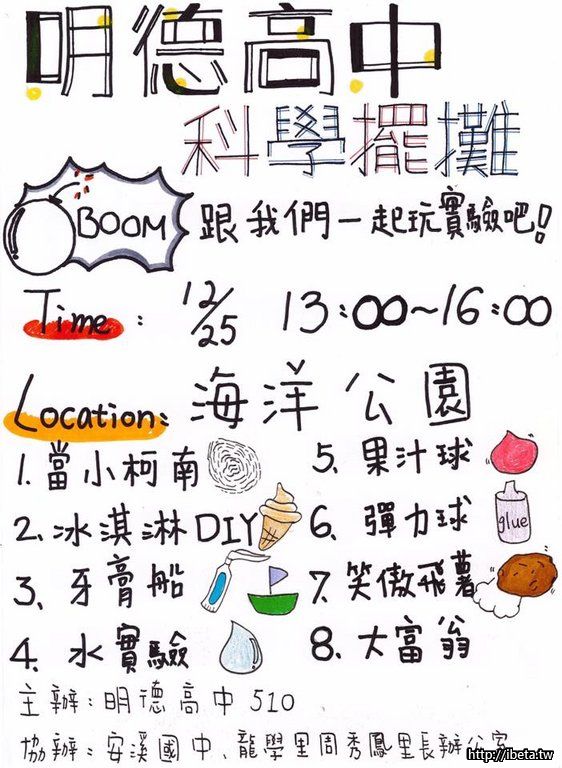 明德高中
科學擺攤
BOOM 跟我們一起玩實驗吧!
Time: 12/25 13:00~16:00
Location: 海洋公園
1. 當小柯南
2. 冰淇淋DIY
3、牙膏船
4、水實驗
5、果汁球
6、彈力球
glue
7、笑傲飛薯
8、大富翁
主辦:明德高中510
協辦:安溪國中、龍學里周秀鳳里長辦公室
http://ibeta.tw